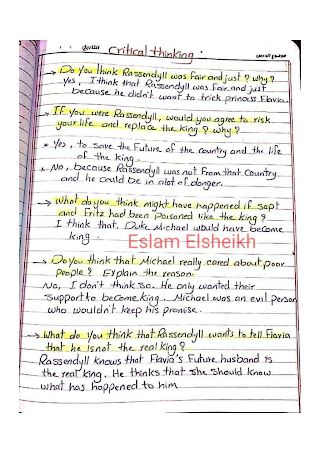 موضوع الدرس
التاريخ
Critical thinking.
→ Do you think Rassendyll was fair and just? why?
Yes, I think that Rassendyll was fair and just
because he didn't want to trick princess Flavia.
→ If you were Rassendyll, would you agree to risk
your life and replace the king? why?
* Yes, to save the future of the country and the life
of the king.
* No, because Rassendyll was not from that country
and he could be in alot of danger.
→ What do you think might have happened if sapt
and Fritz had been poisoned like the king?
I think that Duke Michael would have become
king.
Eslam Elsheikh
→ Do you think that Michael really cared about poor
people? Explain the reason.
No, I don't think so. He only wanted their
support to become king. Michael was an evil person
who wouldn't keep his promise.
→ What do you think that Rassendyll wants to tell Flavia
that he is not the real king?
Rassendyll knows that Flavia's future husband is
the real king. He thinks that she should know
what has happened to him